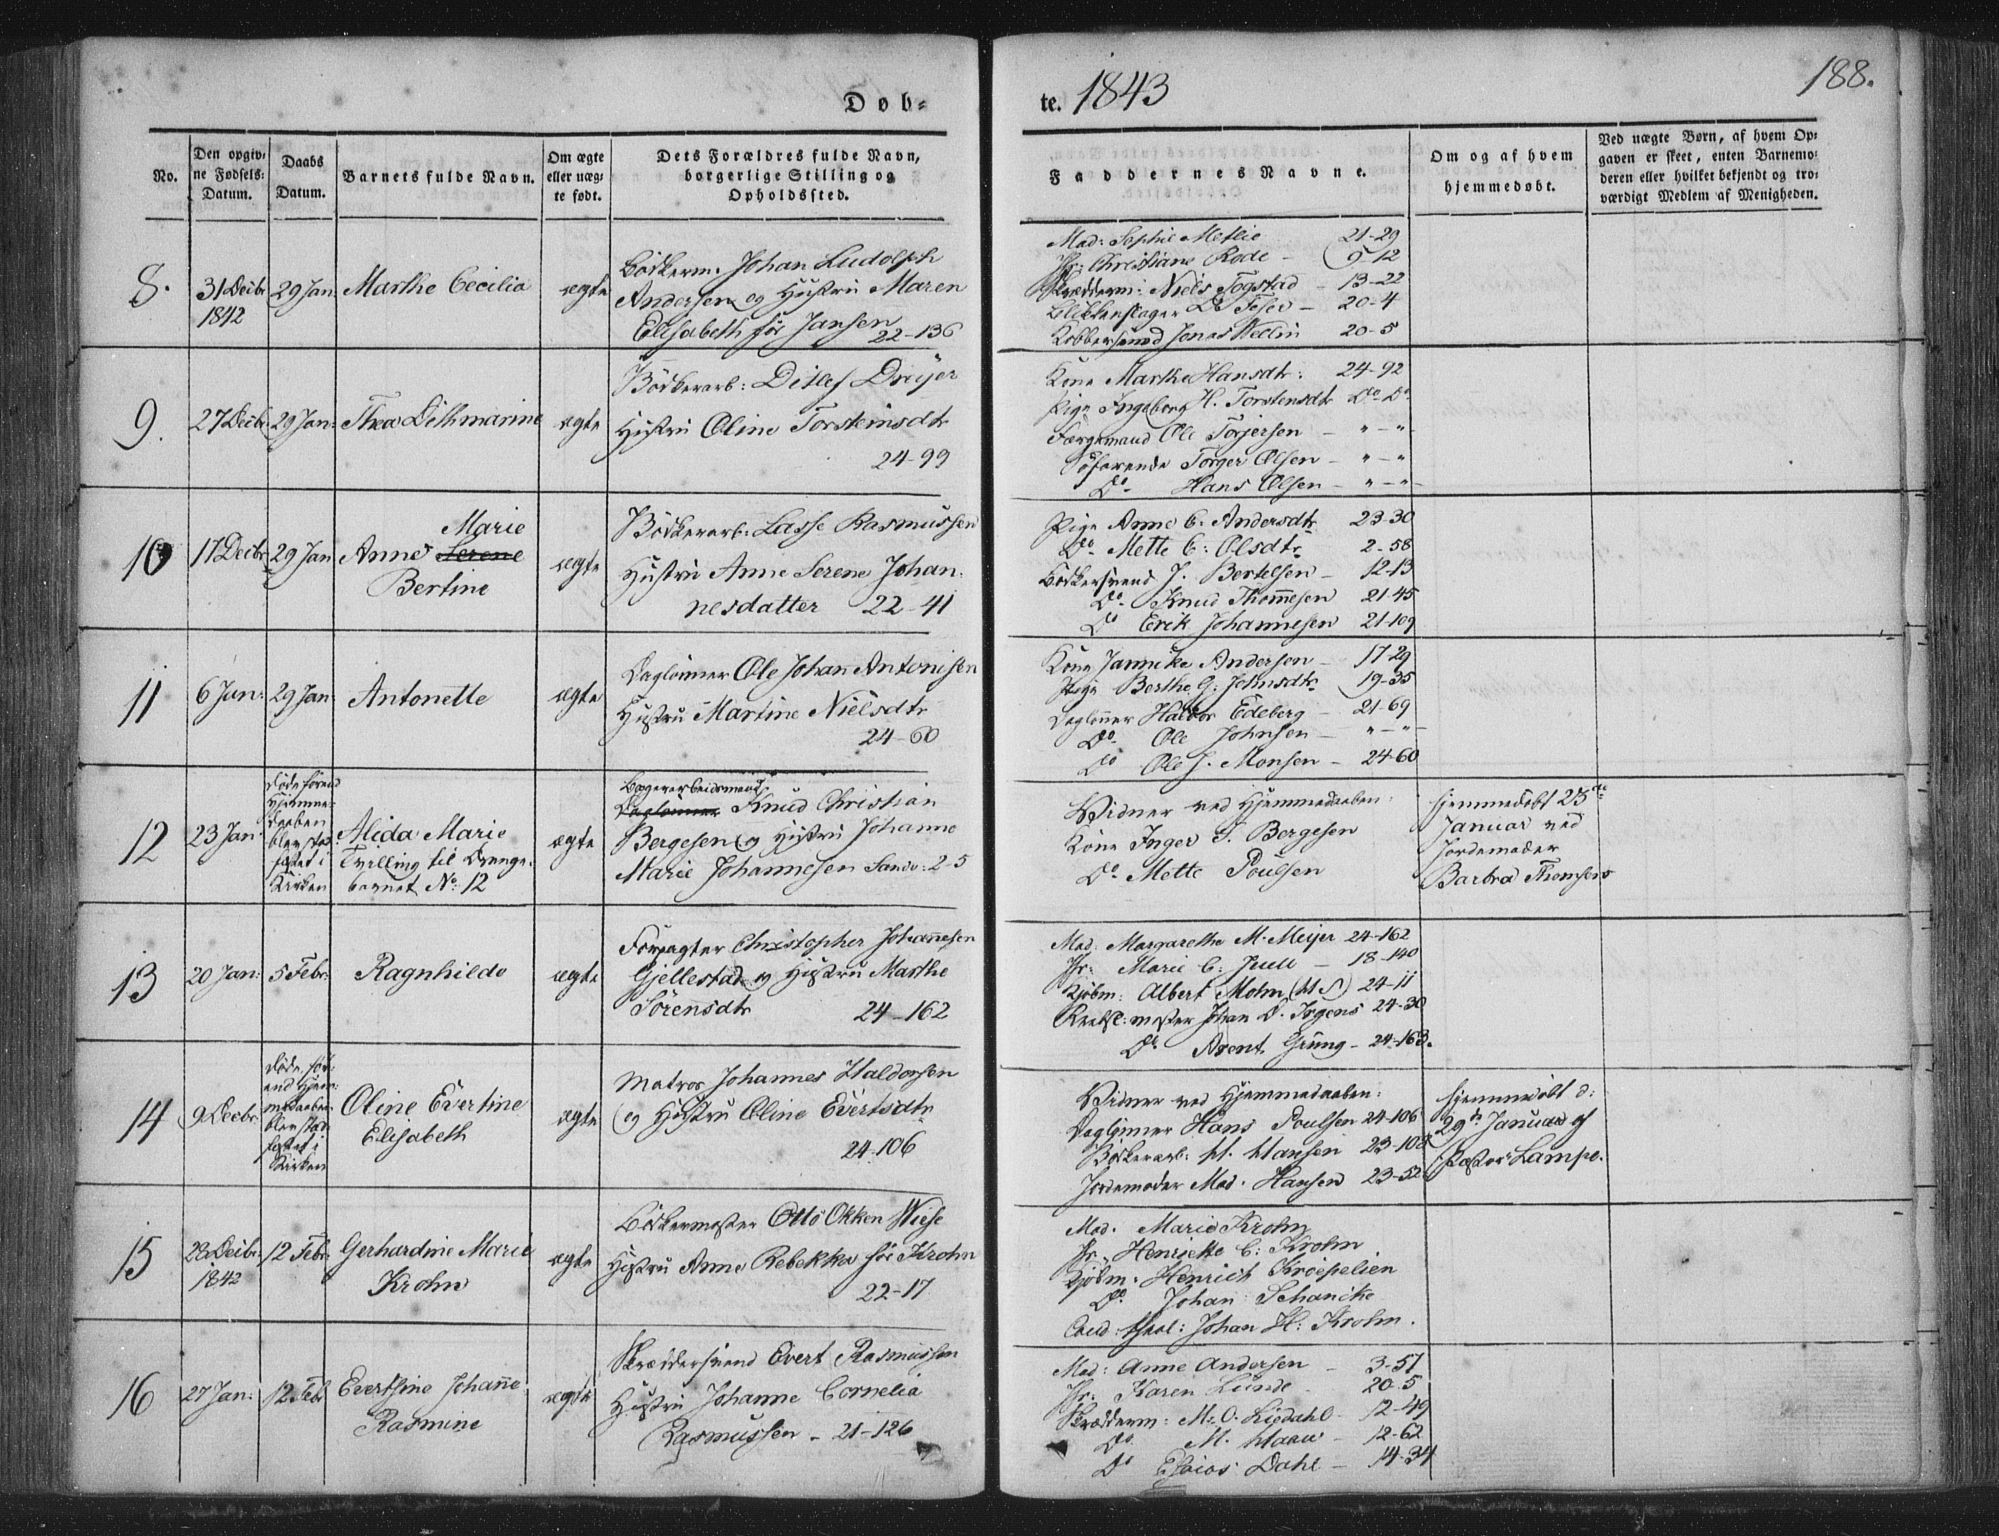 Døb-
te. 1843
188.
No.
Den opgiv-
ne Fødsels-
Datum.
Daabs
Datum.
Barnets fulde Navn.
Om ægte
eller uæg-
te født.
Dets Forældres fulde Navn,
borgerlige Stilling og
Opholdssted.
Faddernes Navne.
Om og af hvem
hjemmedøbt.
Ved uægte Børn, af hvem Op-
gaven er skeet, enten Barnemo-
deren eller hvilket bekjendt og tro-
værdigt Medlem af Menigheden.
8.
31 Decbr
1842
29 Jan:
Marthe Cecilia
ægte
Bødkerm. Johan Ludolph
Andersen og Hustru Maren
Elisabeth før Jansen
22-136
Mad: Sophie Metlie 21-29
Jfr: Christiane Rode - 9-12
Skrædderm: Niels Fogstad - 13-22
Blikkenslager D Feser - 20-4
Kobbersmed Jonas Wellin 20-5
9.
27 Decbr
29 Jan:
Thea Dithmarine
ægte
Bødkerarb: Ditlef Dreyer
Hustru Oline Torsteinsdtr
24-99
Kone Marthe Hansdtr: 24-92
Pige Ingeborg H. Torstensdtr Do Do
Færgemand Ole Torjersen - " - "
Søfarende Torger Olsen - " - "
Do Hans Olsen - " - "
10
17 Decbr
29 Jan
Marie
Anne Serene
Bertine
ægte
Bødkerarb: Lasse Rasmussen
Hustru Anne Serene Johan-
nesdatter 22-41
Pige Anne C. Andersdtr 23-30
Do Mette C: Olsdtr 2-58
Bødkersvend J. Bertelsen - 12-13
Do Knud Thommesen 21-45
Do Erik Johannesen 21-109
11
6 Jan:
29 Jan
Antonette
ægte
Daglønner Ole Johan Antonisen
Hustru Martine Nielsdtr
24-60
Kone Jannike Andersen - 17-29
Pige Berthe G: Johnsdtr 19-35
Daglønner Haldor Edeberg - 21-69
Do Ole Johnsen - " - "
Do Ole J. Monsen - 24-60
12
23 Jan:
Døde førend
Hjemme-
daaben
blev stad-
fæstet i
Kirken
Alida Marie
Tvilling til Drenge-
barnet No: 12
ægte
Bagerarbeidsmand
Daglønner Knud Christian
Bergesen og Hustru Johanne
Marie Johannesen Sandv: 2-5
Vidner ved Hjemmedaaben:
Kone Inger S. Bergesen
Do Mette Poulsen
hjemmedøbt 25de
Januar ved
Jordemoder
Barbra Thomsens
13
20 Jan:
5 Febr:
Ragnhilde
ægte
Forvagter Christopher Johannesen
Gjellestad og Hustru Marthe
Sörensdtr
24-162
Mad: Margarethe M. Meyer 24-162
Jfr: Marie C: Juell - 18-140
Kjøbm: Albert Mohn (H S) 24-11
Rebsl: mester Johan D. Irgens 24-30
Do Arent Grung - 24-163.
14
9 Decbr:
Døde før-
end Hjem-
medaaben
blev stad-
fæstet i
Kirken
Oline Evertine
Elisabeth
ægte
Matros Johannes Haldorsen
og Hustru Oline Evertsdtr
24-106
Vidner ved Hjemmedaaben:
Daglønner Hans Poulsen 24-106
Bødkerarb: H. Hansen 23-102
Jordemoder Mad. Hansen 23-52
hjemmedøbt d:
29de Januar af
Pastor Lampe.
15
28 Decbr:
1842
12 Febr:
Gerhardine Marie
Krohn
ægte
Bødkermester Otto Okken Wiese
Hustru Anne Rebekka før Krohn
22-17
Mad. Marie Krohn
Jfr: Henriette C: Krohn
Kjøbm. Henrich Kröepelien
Do. Johan Schancke
Cand: theol: Johan H: Krohn.
16
27 Jan:
12 Feb
Evertsine Johanne
Rasmine
ægte
Skræddersvend Evert Rasmussen
Hustru Johanne Cornelia
Rasmussen - 21-126
Mad: Anne Andersen - 3-57
Jfr: Karen Lunde - 20-5
Skrædderm: M: O. Liedahl - 12-49
Do M. Haau - 12-62
Do Esaias Dahl - 14-34